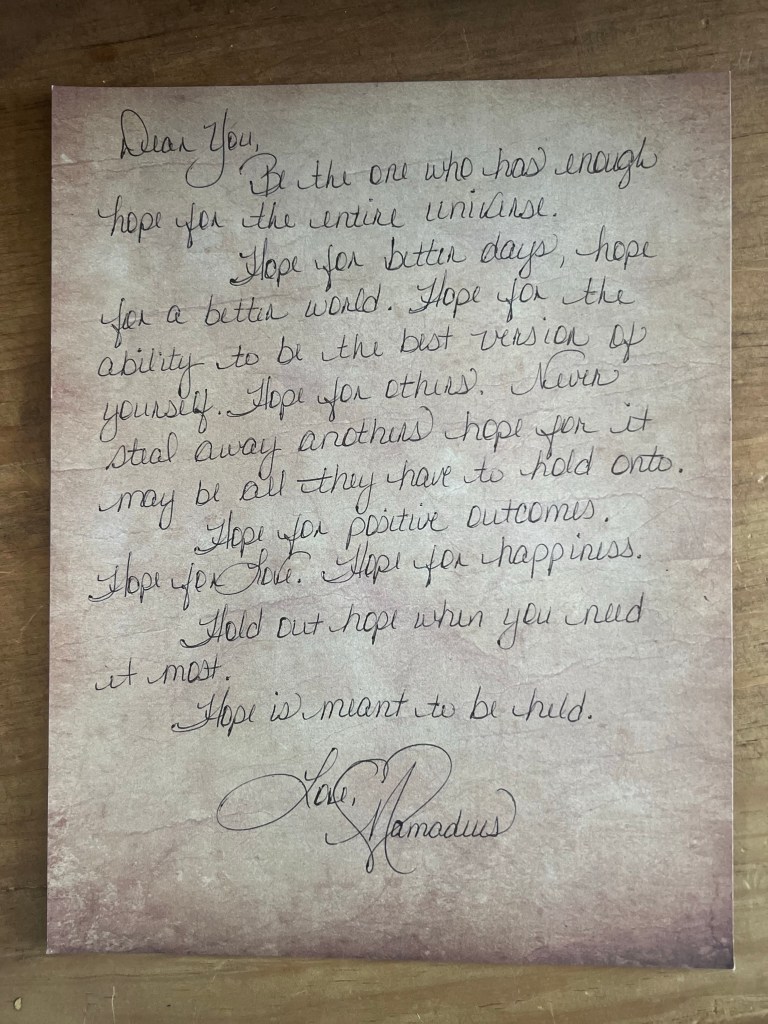 Dear You,
Be the one who has enough
hope for the entire universe.
Hope for better days, hope
for a better world. Hope for the
ability to be the best version of
yourself. Hope for others. Never
steal away anothers hope for it
may be all they have to hold onto.
Hope for positive outcomes.
Hope for Love. Hope for happiness.
Hold out hope when you need
it most.
Hope is meant to be held.
Love,
Mamadeus